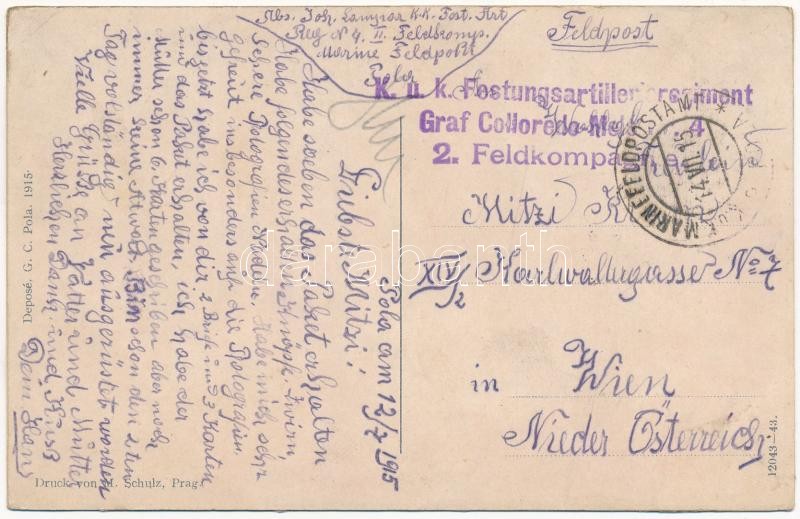 Abs. Joh. K.K. Fest. Art
Reg N 4. II. Feldkomp.
Marine Feldpost
Pola
Feldpost
K. u. k. Festungsartillerieregiment
Graf Colloredo-Mels 4
2. Feldkompanie
K.u.K. MARINEFELDPOSTAMT
14.VII.15
Mitzi
XIV/2 Karlwallnergasse No 7
in Wien
Nieder Österreich
Pola am 12/7 1915
Liebste Mitzi!
Habe soeben das Paket erhalten
habe folgendes erhalten Knöpfe Zwirn
Schere Fotografien Nadeln. Habe mich sehr
gefreut insbesonders auf die Fotografien.
bis jetzt habe ich von dir 2 Briefe und 3 Karten
und das Paket erhalten, ich habe der
Mutter schon 6 Karten geschrieben aber noch
immer keine Antwort. Bin schon den 2ten
Tag vollständig ausgerüstet worden
Viele Grüße an Vatter und Mutter
Herzlichen Dank und Kuss
Dein Hans
Deposé. G. C. Pola. 1915.
Druck von M. Schulz, Prag
12043-43.
darabanth